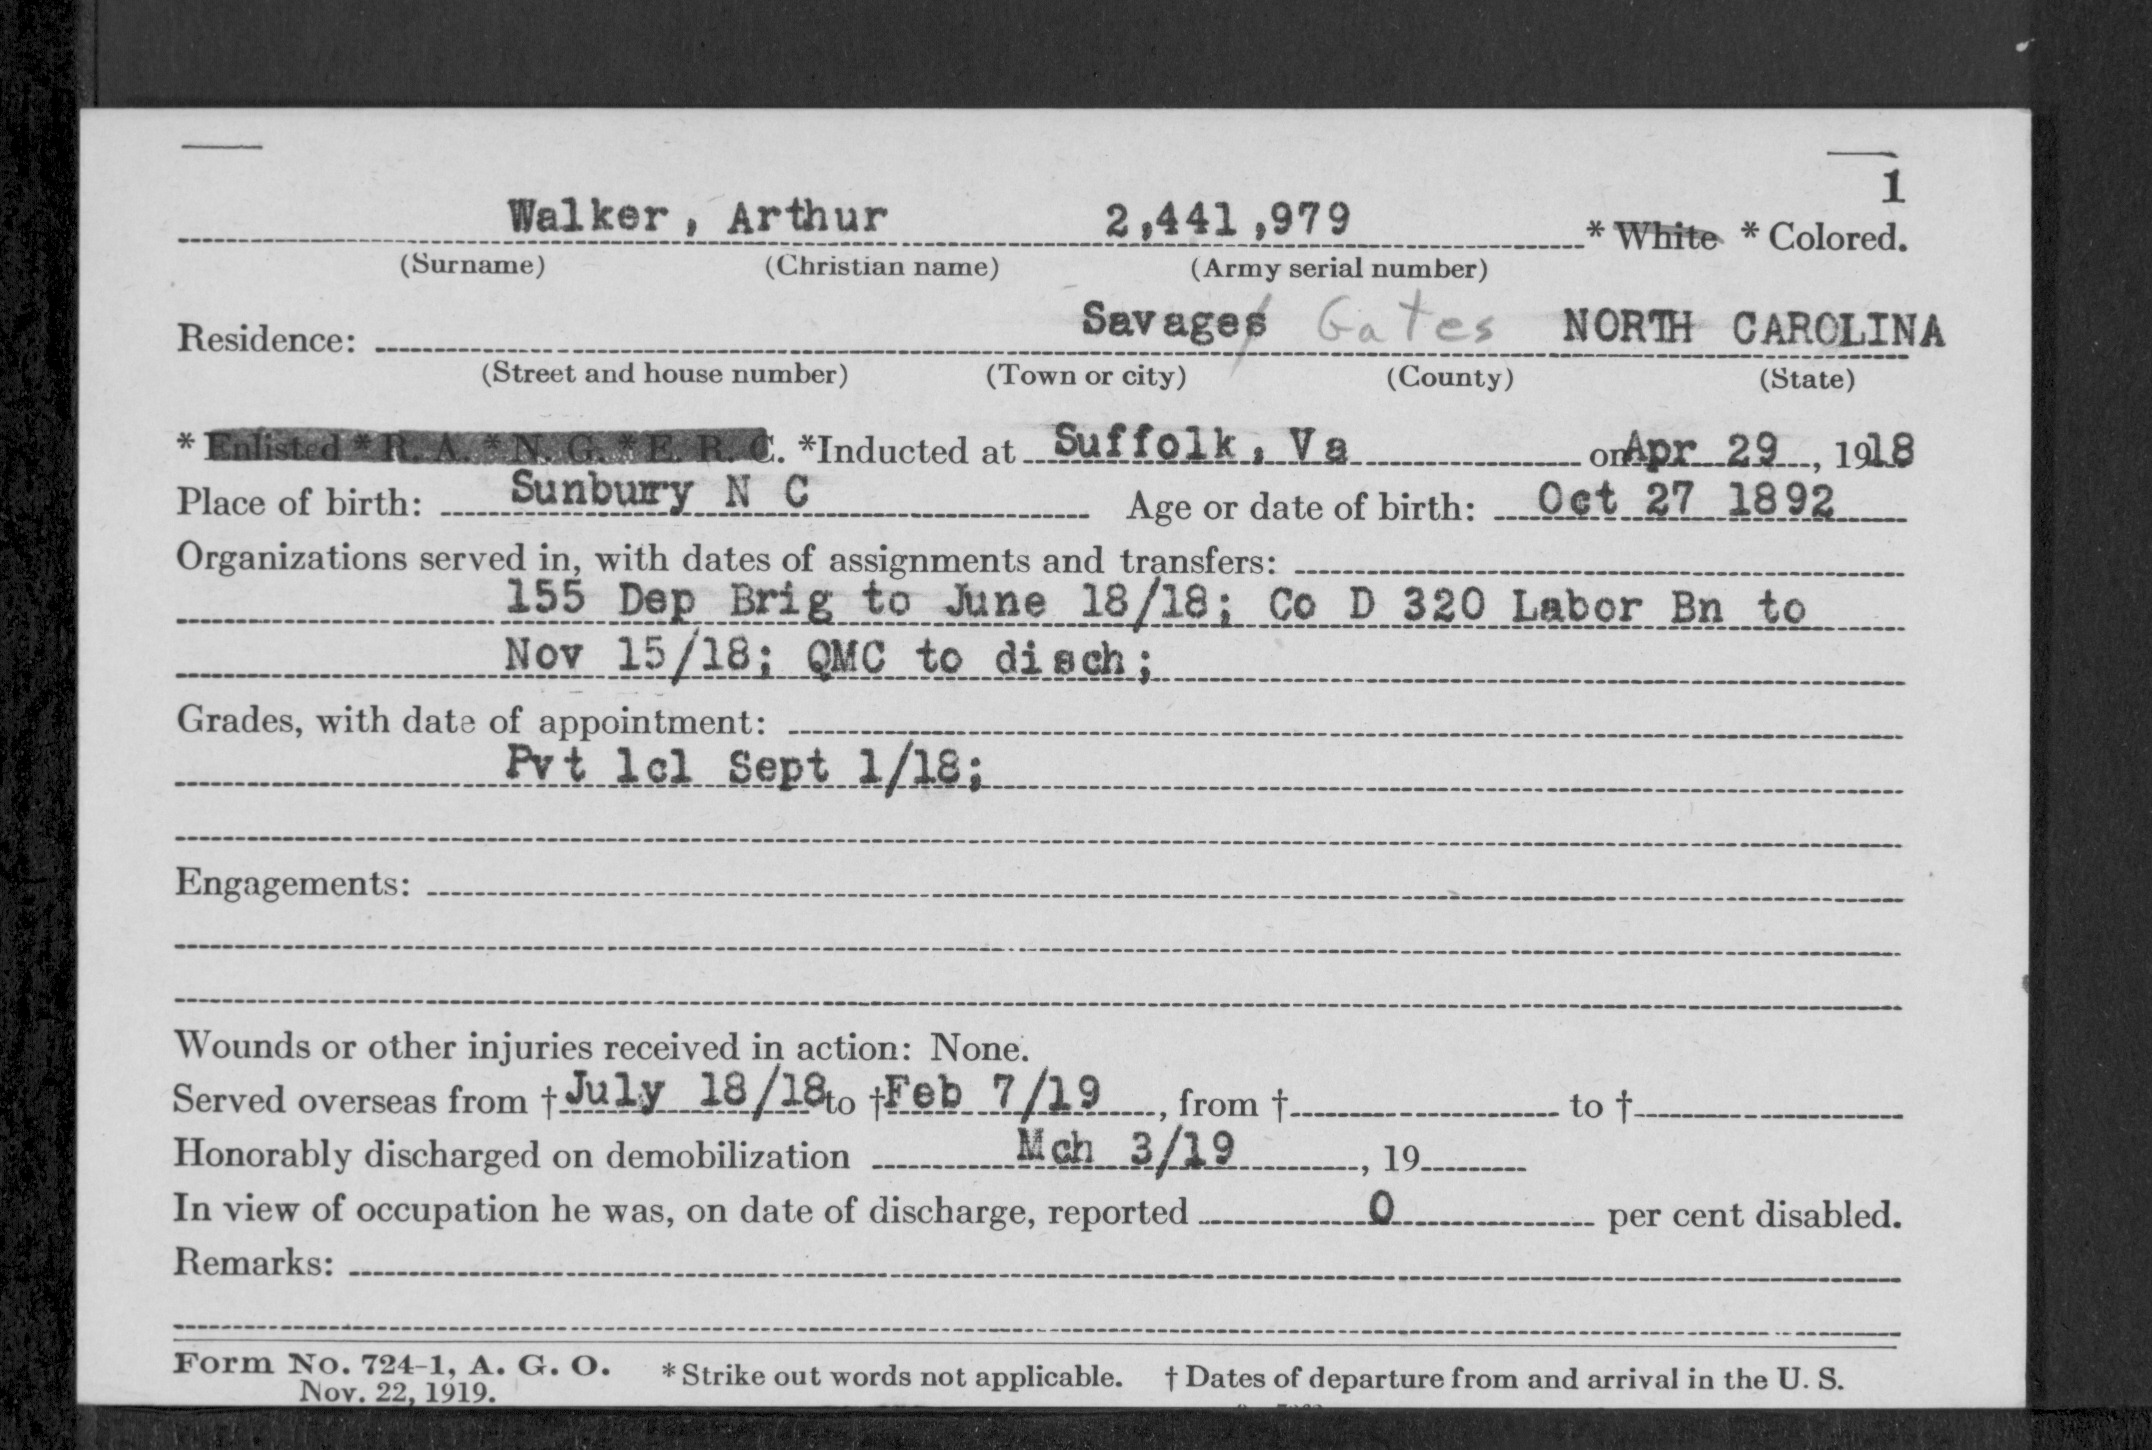 1
Walker, Arthur 2,441,979 * White * Colored.
(Surname) (Christian name) (Army serial number)
Residence: Savages Gates NORTH CAROLINA
(Street and house number) (Town or city) (County) (State)
* Enlisted * R. A. * N. G. * E. R. C. *Inducted at Suffolk, Va on Apr 29, 1918
Place of birth: Sunbury N C Age or date of birth: Oct 27 1892
Organizations served in, with dates of assignments and transfers:
155 Dep Brig to June 18/18; Co D 320 Labor Bn to
Nov 15/18; QMC to disch;
Grades, with date of appointment:
Pvt 1cl Sept 1/18;
Engagements:
Wounds or other injuries received in action: None.
Served overseas from † July 18/18 to † Feb 7/19, from † to †
Honorably discharged on demobilization Mch 3/19, 19
In view of occupation he was, on date of discharge, reported 0 per cent disabled.
Remarks:
Form No. 724-1, A. G. O. * Strike out words not applicable. † Dates of departure from and arrival in the U. S.
Nov. 22, 1919.